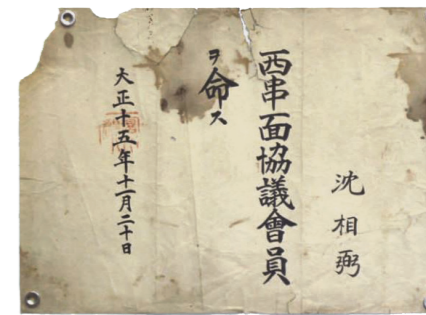 沈相弼
西串面協議會員
ヲ命ス
大正十五年十一月二十日